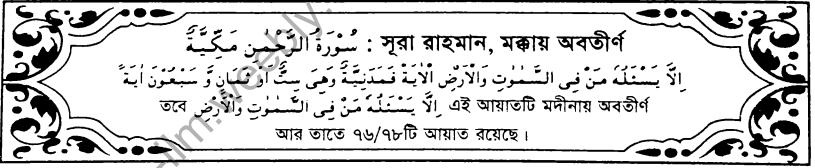 سُوْرَةُ الرَّحْمٰنِ مَكِّيَّةٌ : সূরা রাহমান, মক্কায় অবতীর্ণ
اِلَّا يَسْئَلُهٗ مَنْ فِى السَّمٰوٰتِ وَالْاَرْضِ الْاٰيَةَ فَمَدَنِيَّةٌ وَهِىَ سِتٌّ اَوْ ثَمَانٍ وَّ سَبْعُوْنَ اٰيَةً
তবে اِلَّا يَسْئَلُهٗ مَنْ فِى السَّمٰوٰتِ وَالْاَرْضِ এই আয়াতটি মদীনায় অবতীর্ণ
আর তাতে ৭৬/৭৮টি আয়াত রয়েছে।